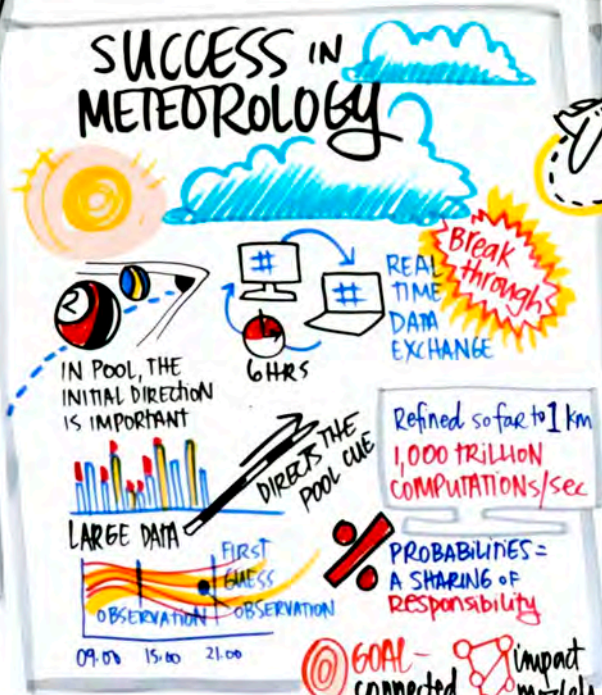 SUCCESS IN
METEOROLOGY
Break
through
#
#
REAL
TIME
DATA
EXCHANGE
2
6HRS
IN POOL, THE
INITIAL DIRECTION
IS IMPORTANT
DIRECTS THE
POOL CUE
Refined so far to 1 km
1,000 TRILLION
COMPUTATIONS/sec
LARGE DATA
FIRST
GUESS
OBSERVATION
OBSERVATION
09.00 15.00 21.00
%
PROBABILITIES =
A SHARING OF
Responsibility
GOAL-
connected
impact
models